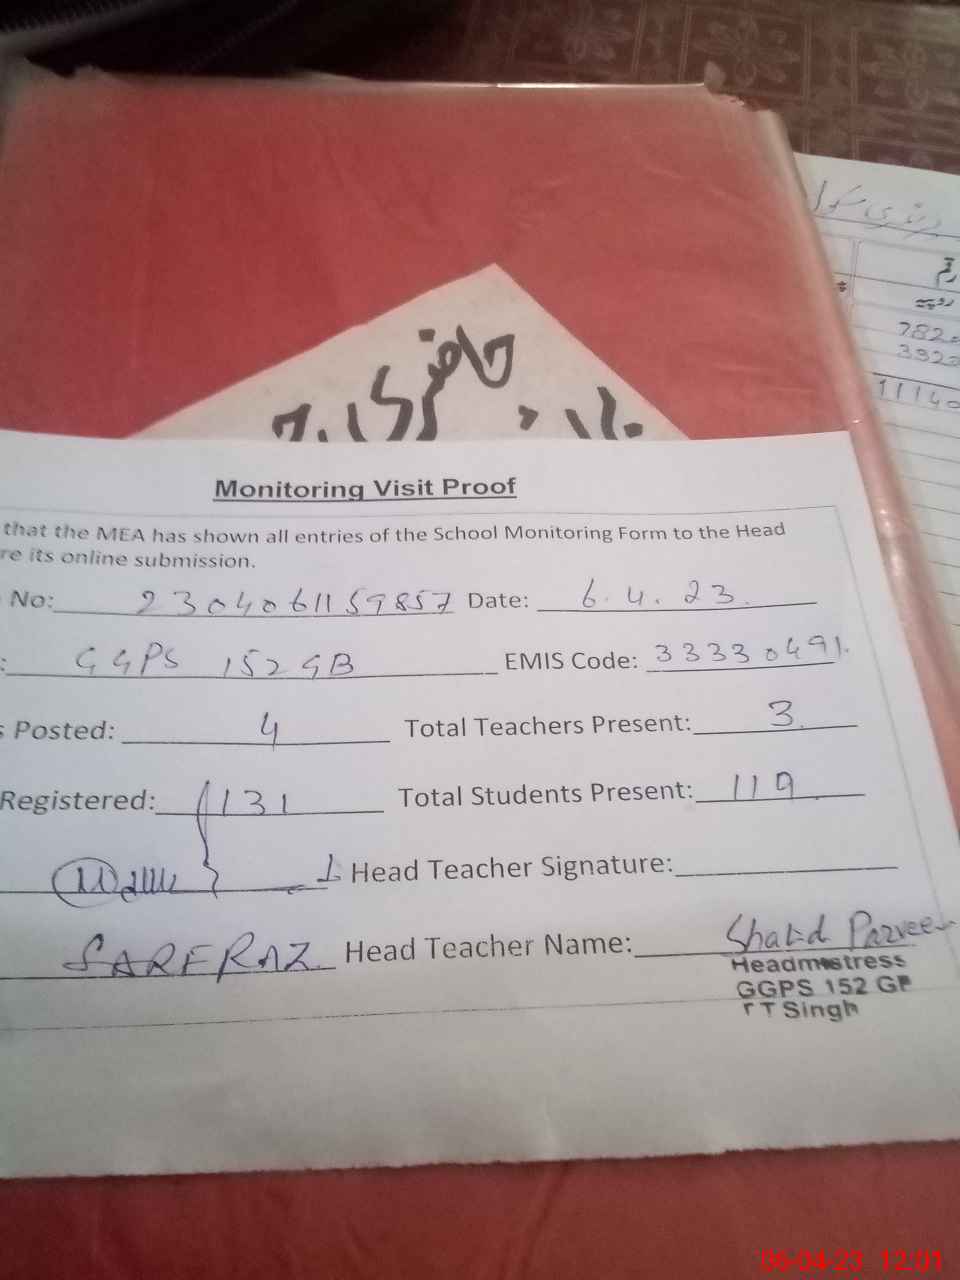 رقم
روپیہ
7820
3320
11140
حاضری
Monitoring Visit Proof
that the MEA has shown all entries of the School Monitoring Form to the Head
re its online submission.
No: 2304061159857 Date: 6.4.23.
: GGPS 152 GB EMIS Code: 33330491.
s Posted: 4 Total Teachers Present: 3.
Registered: 131 Total Students Present: 119
Head Teacher Signature:
SARFRAZ Head Teacher Name: Parveen
Headmistress
GGPS 152 GB
T Singh
06-04-23 12:01